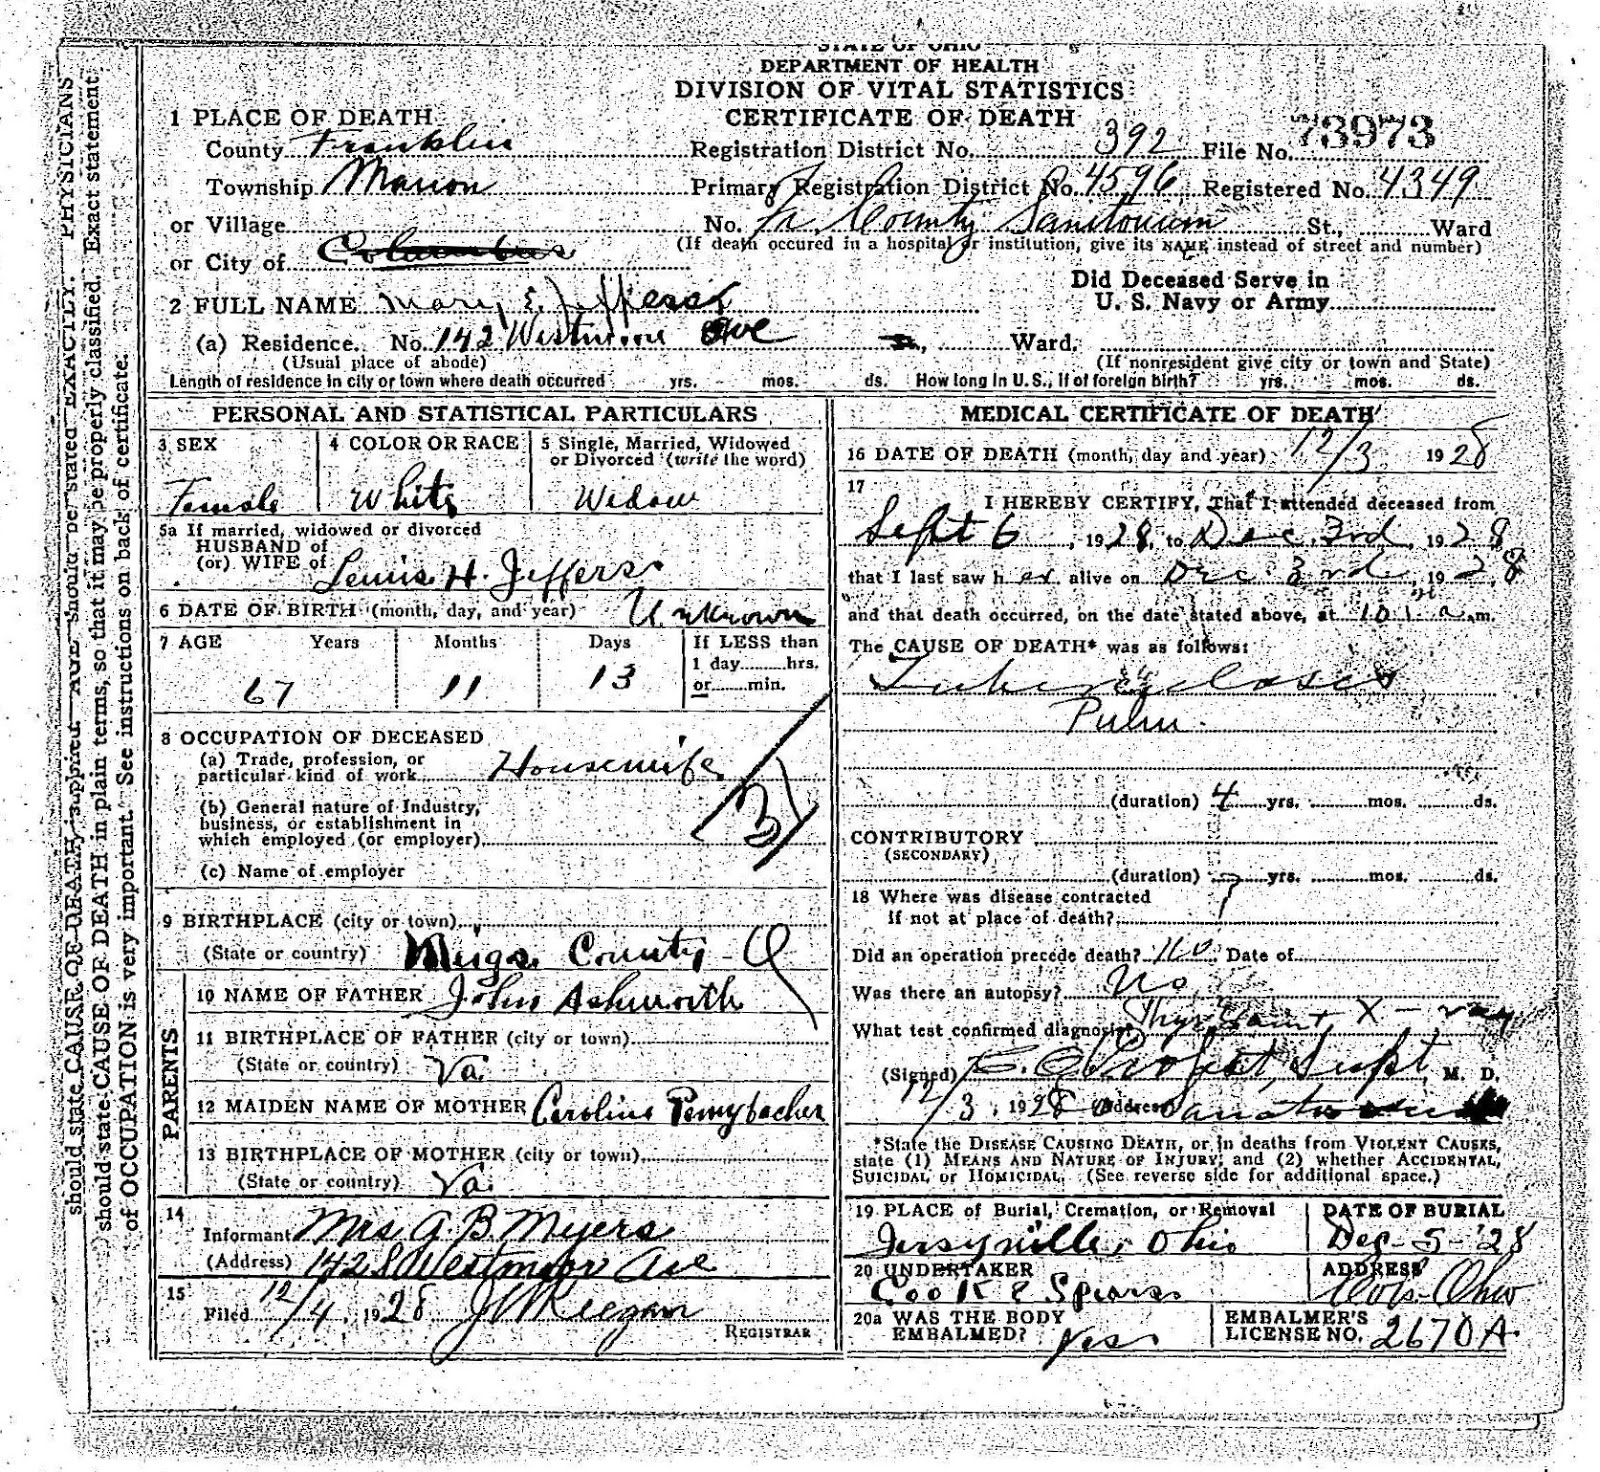 STATE OF OHIO
DEPARTMENT OF HEALTH
DIVISION OF VITAL STATISTICS
CERTIFICATE OF DEATH
1 PLACE OF DEATH
County Franklin
Registration District No. 392 File No. 73973
Township Marion
Primary Registration District No. 4596 Registered No. 4349
or Village
No. Fr. County Sanitorium St., Ward
(If death occured in a hospital or institution, give its NAME instead of street and number)
or City of Columbus
Did Deceased Serve in
U. S. Navy or Army
2 FULL NAME Mary E. Jeffers
(a) Residence. No. 142 Ave Ward.
(Usual place of abode) (If nonresident give city or town and State)
Length of residence in city or town where death occurred yrs. mos. ds. How long in U. S., if of foreign birth? yrs. mos. ds.
PERSONAL AND STATISTICAL PARTICULARS
3 SEX 4 COLOR OR RACE 5 Single, Married, Widowed
or Divorced (write the word)
Female White Widow
5a If married, widowed or divorced
HUSBAND of
(or) WIFE of Lewis H. Jeffers
6 DATE OF BIRTH (month, day, and year) Unknown
7 AGE Years Months Days If LESS than
1 day hrs.
or min.
67 11 13
8 OCCUPATION OF DECEASED
(a) Trade, profession, or
particular kind of work Housewife
31
(b) General nature of Industry,
business, or establishment in
which employed (or employer)
(c) Name of employer
9 BIRTHPLACE (city or town)
(State or country) Meigs County - O
PARENTS
10 NAME OF FATHER John Ashworth
11 BIRTHPLACE OF FATHER (city or town)
(State or country) Va.
12 MAIDEN NAME OF MOTHER Caroline Pennybacker
13 BIRTHPLACE OF MOTHER (city or town)
(State or country) Va.
14
Informant Mrs A. B. Myers
(Address) 142 S Westmoor Ave
15
Filed 12/4, 1928 J Keegan
REGISTRAR
MEDICAL CERTIFICATE OF DEATH
16 DATE OF DEATH (month, day and year) 12/3 1928
17
I HEREBY CERTIFY, That I attended deceased from
Sept 6, 1928, to Dec. 3rd, 1928
that I last saw her alive on Dec. 3rd, 1928
and that death occurred, on the date stated above, at 10 a.m.
The CAUSE OF DEATH* was as follows:
Tuberculosis
Pulm.
(duration) 4 yrs. mos. ds.
CONTRIBUTORY
(SECONDARY)
(duration) yrs. mos. ds.
18 Where was disease contracted
if not at place of death? ?
Did an operation precede death? no Date of
Was there an autopsy? No
What test confirmed diagnosis? X-ray
(Signed) Supt, M. D.
12/3, 1928 Address
*State the DISEASE CAUSING DEATH, or in deaths from VIOLENT CAUSES,
state (1) MEANS AND NATURE OF INJURY; and (2) whether ACCIDENTAL,
SUICIDAL or HOMICIDAL. (See reverse side for additional space.)
19 PLACE of Burial, Cremation, or Removal DATE OF BURIAL
Jersyville, Ohio Dec-5-'28
20 UNDERTAKER ADDRESS
Cook & Spears Cols. Ohio
20a WAS THE BODY
EMBALMED? Yes.
EMBALMER'S
LICENSE NO. 2670A
should state CAUSE OF DEATH is supplied. AGE should be stated EXACTLY. PHYSICIANS
should state CAUSE OF DEATH in plain terms, so that it may be properly classified. Exact statement
of OCCUPATION is very important. See instructions on back of certificate.